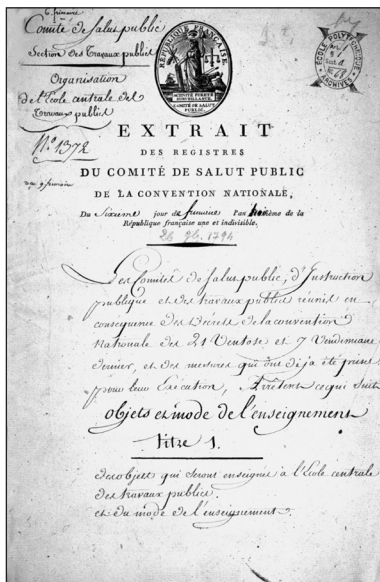 6 frimaire
Comité de Salut public
Section des Travaux publics
Organisation
de l'Ecole centrale des
Travaux publics
N° 1372
RÉPUBLIQUE FRANÇAISE.
ACTIVITÉ PURETÉ
SURVEILLANCE.
COMITÉ DE SALUT
PUBLIC.
ÉCOLE POLYTECHNIQUE
ARCHIVES
EXTRAIT
DES REGISTRES
DU COMITÉ DE SALUT PUBLIC
DE LA CONVENTION NATIONALE,
Du Sixieme jour de frimaire l'an troisième de la
République française une et indivisible.
1794
Les Comités de Salut public, d'Instruction
publique et des travaux publics réunis en
consequence des Décrets de la convention
Nationale des 21 Ventose et 7 Vendemiaire
dernier, et des mesures qui ont déja été prises
pour leur Exécution, Arrêtent ce qui suit
objets et mode de l'enseignement
titre 1.
des objets qui seront enseignés à l'Ecole centrale
des travaux publics.
et du mode de l'enseignement.